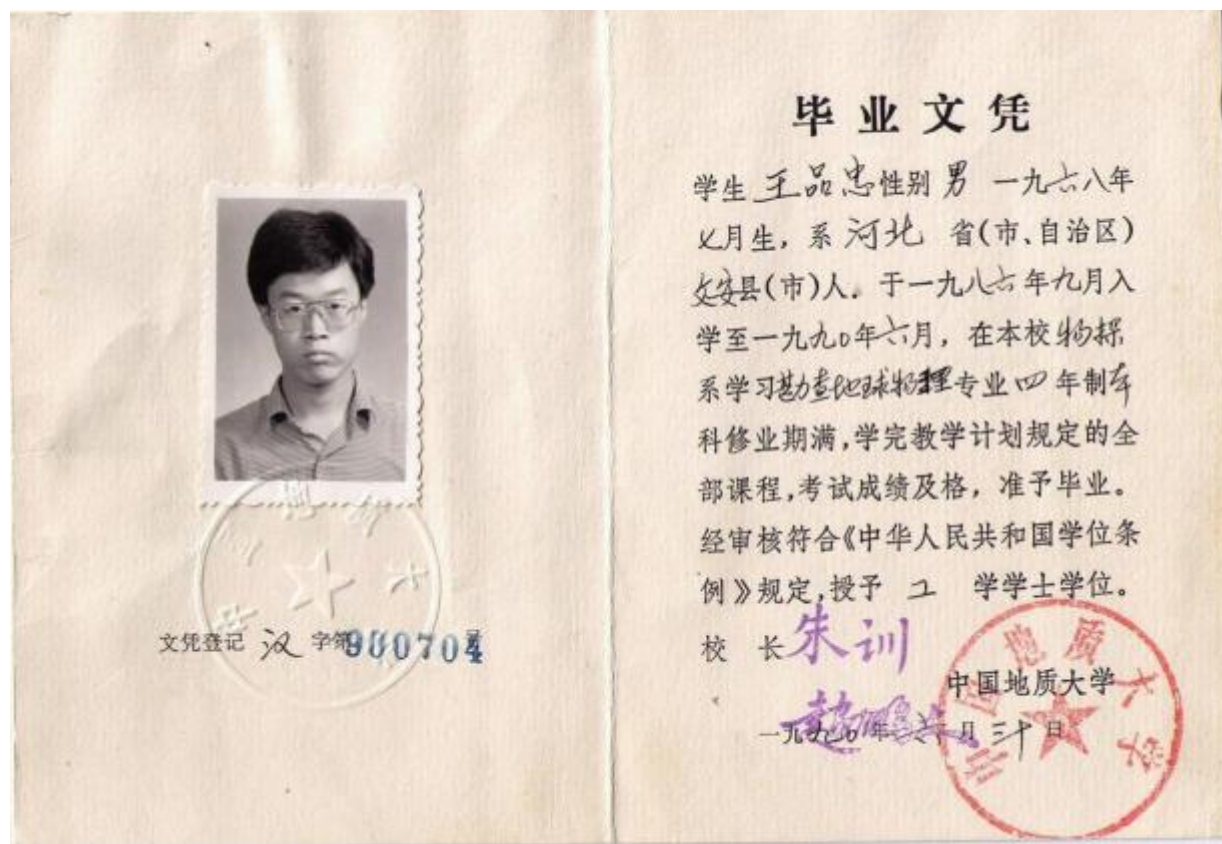 文凭登记 汉 字第900704号
毕业文凭
学生 王品忠 性别 男 一九六八年
七月生，系 河北 省(市、自治区)
文安县(市)人．于一九八六年九月入
学至一九九〇年六月，在本校物探
系学习勘查地球物理专业四年制本
科修业期满，学完教学计划规定的全
部课程，考试成绩及格，准予毕业。
经审核符合《中华人民共和国学位条
例》规定，授予 工 学学士学位。
校 长 朱训
中国地质大学
赵鹏大
一九九〇年六月三十日
中国地质大学